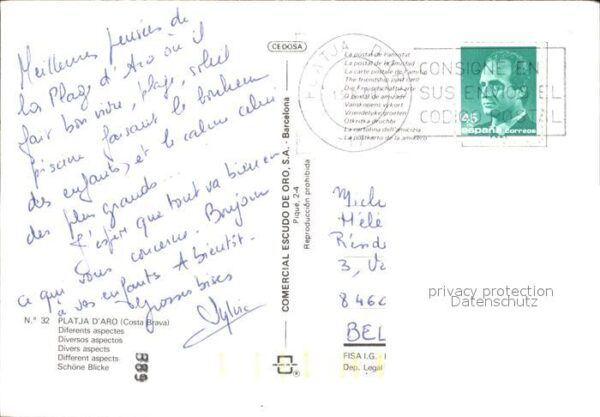 Meilleures pensées de
la Plage d'Aro où il
fait bon vivre, plage, soleil
piscine faisant le bonheur
des enfants, et le calme celui
des plus grands...
J'espère que tout va bien en
ce que vous concerne. Bonjour
à vos enfants A bientôt.
grosses bises
Sylvie
N.º 32 PLATJA D'ARO (Costa Brava)
Diferents aspectes
Diversos aspectos
Divers aspects
Different aspects
Schöne Blicke
889
CEDOSA
COMERCIAL ESCUDO DE ORO, S.A. - Barcelona
Piqué, 2-4
Reproducción prohibida
La postal de l'amistat
La postal de la amistad
La carte postale de l'amitié
The friendship post card
Die Freundschaftskarte
O postal de amizade
Vänskapens vykort
Vriendelijke groeten
La cartolina dell'amicizia
PLATJA D
CONSIGNE EN
SUS ENVIOS EL
CODIGO POSTAL
45
españa correos
Mich
Hélè
Rinde
3, Va
8460
BEL
FISA I.G.
Dep. Legal
privacy protection
Datenschutz